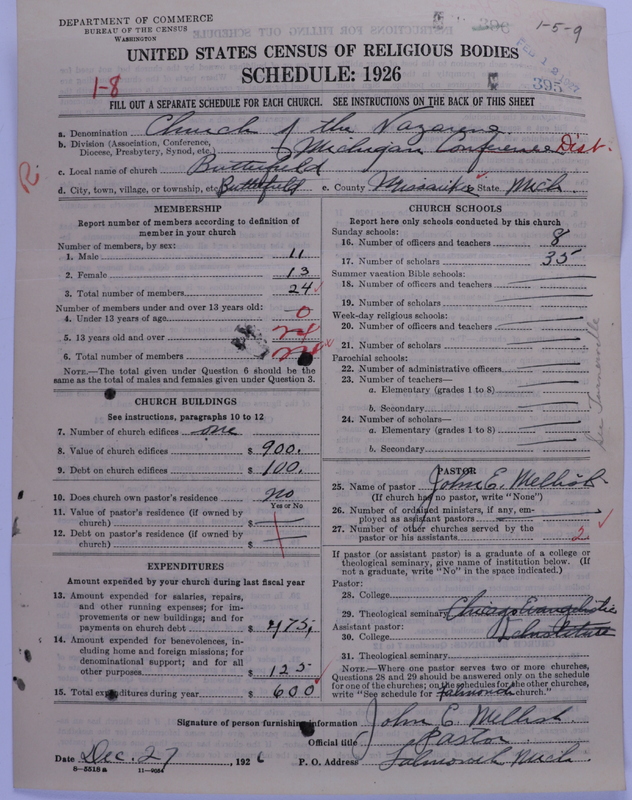 DEPARTMENT OF COMMERCE
BUREAU OF THE CENSUS
WASHINGTON
396
1-5-9
UNITED STATES CENSUS OF RELIGIOUS BODIES
SCHEDULE: 1926
395
1-8
FILL OUT A SEPARATE SCHEDULE FOR EACH CHURCH. SEE INSTRUCTIONS ON THE BACK OF THIS SHEET
a. Denomination Church of the Nazarene
b. Division (Association, Conference, Diocese, Presbytery, Synod, etc.) Michigan Conference Dist.
c. Local name of church Butterfield
d. City, town, village, or township, etc. Butterfield e. County Missaukee State Mich.
MEMBERSHIP
Report number of members according to definition of member in your church
Number of members, by sex:
1. Male 11
2. Female 13
3. Total number of members 24
Number of members under and over 13 years old:
4. Under 13 years of age 0
5. 13 years old and over 24
6. Total number of members 24
NOTE.—The total given under Question 6 should be the same as the total of males and females given under Question 3.
CHURCH BUILDINGS
See instructions, paragraphs 10 to 12
7. Number of church edifices one
8. Value of church edifices $ 900.
9. Debt on church edifices $ 100.
10. Does church own pastor's residence no
Yes or No
11. Value of pastor's residence (if owned by church) $
12. Debt on pastor's residence (if owned by church) $
EXPENDITURES
Amount expended by your church during last fiscal year
13. Amount expended for salaries, repairs, and other running expenses; for improvements or new buildings; and for payments on church debt $ 475,
14. Amount expended for benevolences, including home and foreign missions; for denominational support; and for all other purposes $ 125
15. Total expenditures during year $ 600
CHURCH SCHOOLS
Report here only schools conducted by this church
Sunday schools:
16. Number of officers and teachers 8
17. Number of scholars 35
Summer vacation Bible schools:
18. Number of officers and teachers
19. Number of scholars
Week-day religious schools:
20. Number of officers and teachers
21. Number of scholars
Parochial schools:
22. Number of administrative officers
23. Number of teachers—
a. Elementary (grades 1 to 8)
b. Secondary
24. Number of scholars—
a. Elementary (grades 1 to 8)
b. Secondary
PASTOR
25. Name of pastor John E. Mellish
(If church has no pastor, write "None")
26. Number of ordained ministers, if any, employed as assistant pastors
27. Number of other churches served by the pastor or his assistants 2
If pastor (or assistant pastor) is a graduate of a college or theological seminary, give name of institution below. (If not a graduate, write "No" in the space indicated.)
Pastor:
28. College
29. Theological seminary Chicago Evangelistic
Assistant pastor:
30. College Institute
31. Theological seminary
NOTE.—Where one pastor serves two or more churches, Questions 28 and 29 should be answered only on the schedule for one of the churches; on the schedules for the other churches, write "See schedule for Falmouth church."
Signature of person furnishing information John E. Mellish
Official title Pastor
Date Dec. 27, 1926 P. O. Address Falmouth Mich.
8-5518a 11-9054